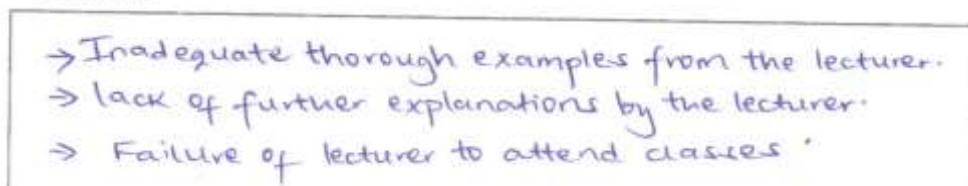 → Inadequate thorough examples from the lecturer.
→ lack of further explanations by the lecturer.
→ Failure of lecturer to attend classes.